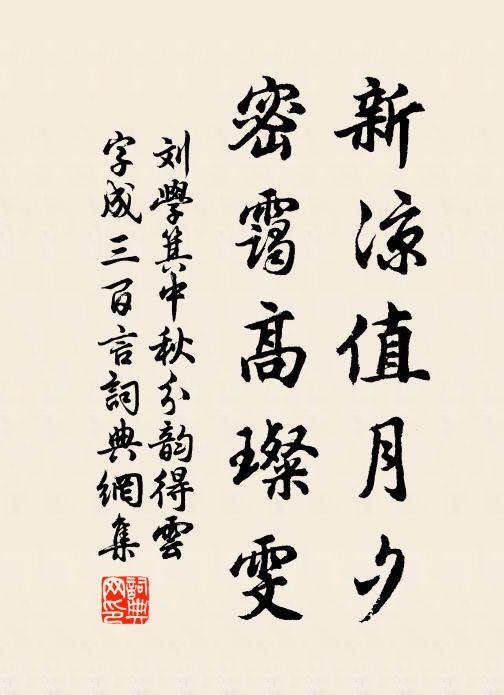 新涼值月夕
密靄高璨雯
刘學箕中秋分韵得雲
字成三百言詞典網集
詞典网印